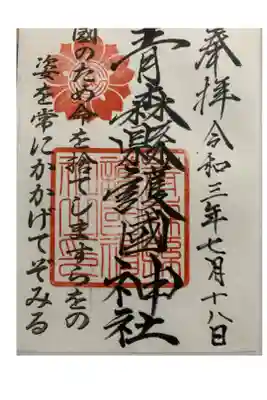 奉拝 令和三年七月十八日
青森縣護國神社
國のため命を捨てしますらをの
姿を常にかかげてぞみる